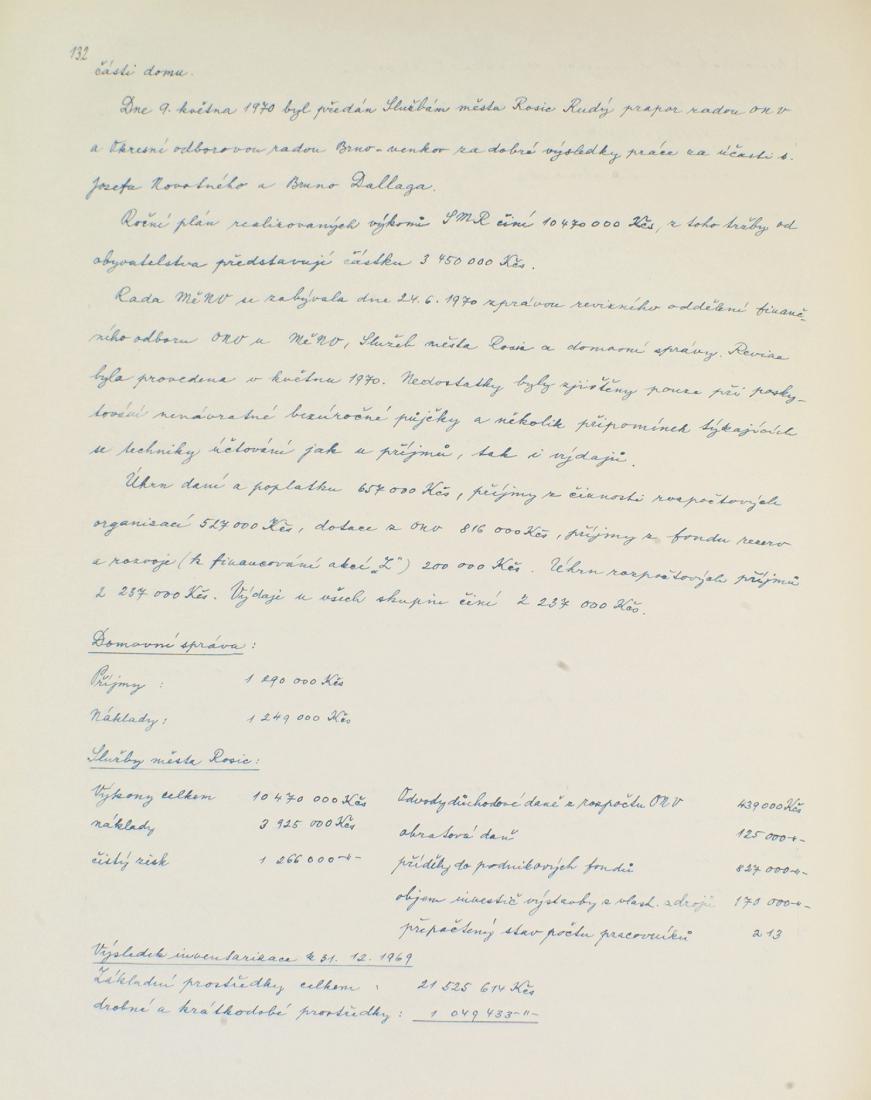 132
části domu.
Dne 9. května 1970 byl předán Službám města Rosic Rudý prapor radou ONV
a Okresní odborovou radou Brno-venkov za dobré výsledky práce za účasti s.
Josefa Novotného a Bruno Dallaga.
Roční plán realizovaných výkonů SMR činí 10 470 000 Kčs, z toho tržby od
obyvatelstva představují částku 3 450 000 Kčs.
Rada MěNV se zabývala dne 24. 6. 1970 zprávou revizního oddělení finanč-
ního odboru ONV u MěNV, Služeb města Rosic a domovní správy. Revize
byla provedena v květnu 1970. Nedostatky byly zjištěny pouze při posky-
tování nenávratné bezúročné půjčky a několik připomínek týkajících
se techniky účtování jak u příjmů, tak i výdajů.
Úhrn daní a poplatku 657 000 Kčs, příjmy z činnosti rozpočtových
organisací 527 000 Kčs, dotace z ONV 816 000 Kčs, příjmy z fondu rezerv
a rozvoje (k financování akcí „Z") 200 000 Kčs. Úhrn rozpočtových příjmů
2 237 000 Kčs. Výdaje u všech skupin činí 2 237 000 Kčs.
Domovní správa:
Příjmy: 1 290 000 Kčs
Náklady: 1 249 000 Kčs
Služby města Rosic:
Výkony celkem 10 470 000 Kčs Odvody důchodové daně z rozpočtu ONV 439 000 Kčs
náklady 3 925 000 Kčs obratová daň 125 000 -"-
čistý zisk 1 266 000 -"- příděly do podnikových fondů 827 000 -"-
objem investič výstavby z vlast. zdrojů 170 000 -"-
přepočtený stav počtu pracovníků 213
Výsledek inventarizace k 31. 12. 1969
Základní prostředky celkem: 21 525 614 Kčs
drobné a krátkodobé prostředky: 1 049 433 -"-